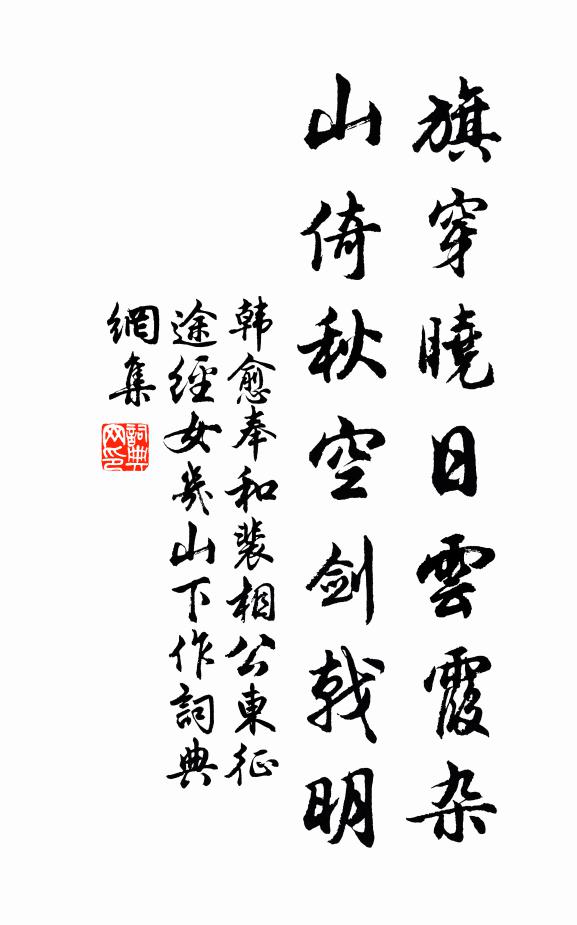 旗穿曉日雲霞杂
山倚秋空剑戟明
韩愈奉和裴相公東征
途經女幾山下作詞典
網集
詞典網印